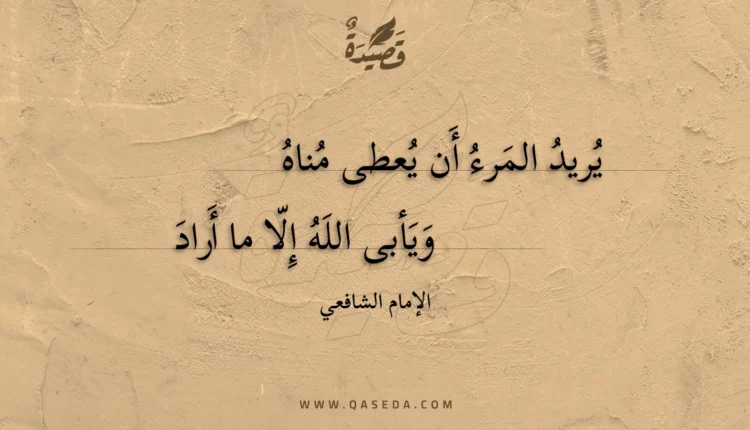 قَصِيدَةٌ
يُريدُ المَرءُ أَن يُعطى مُناهُ
وَيَأبى اللَهُ إِلّا ما أَرادَ
الإمام الشافعي
WWW.QASEDA.COM